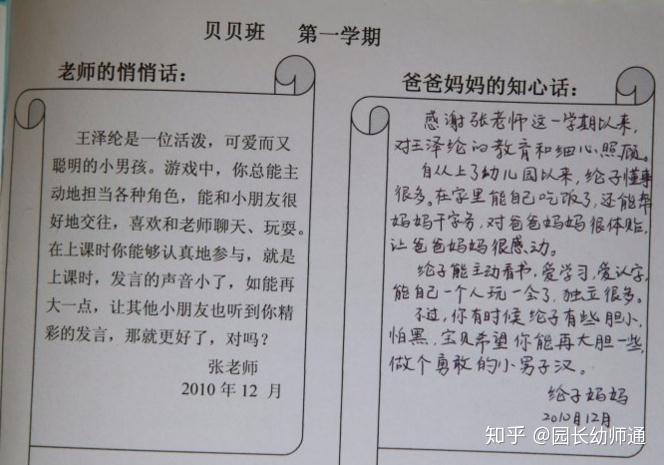 贝贝班 第一学期
老师的悄悄话：
王泽纶是一位活泼，可爱而又
聪明的小男孩。游戏中，你总能主
动地担当各种角色，能和小朋友很
好地交往，喜欢和老师聊天、玩耍。
在上课时你能够认真地参与，就是
上课时，发言的声音小了，如能再
大一点，让其他小朋友也听到你精
彩的发言，那就更好了，对吗？
张老师
2010年12 月
爸爸妈妈的知心话：
感谢张老师这一学期以来，
对王泽纶的教育和细心照顾。
自从上了幼儿园以来，纶子懂事
很多。在家里能自己吃饭了，还能帮
妈妈干家务，对爸爸妈妈很体贴，
让爸爸妈妈很感动。
纶子能主动看书，爱学习，爱认字，
能自己一个人玩一会了，独立很多。
不过，你有时候纶子有些胆小，
怕黑，宝贝希望你能再大胆一些，
做个勇敢的小男子汉。
纶子妈妈
2010月12月
知乎 @园长幼师通